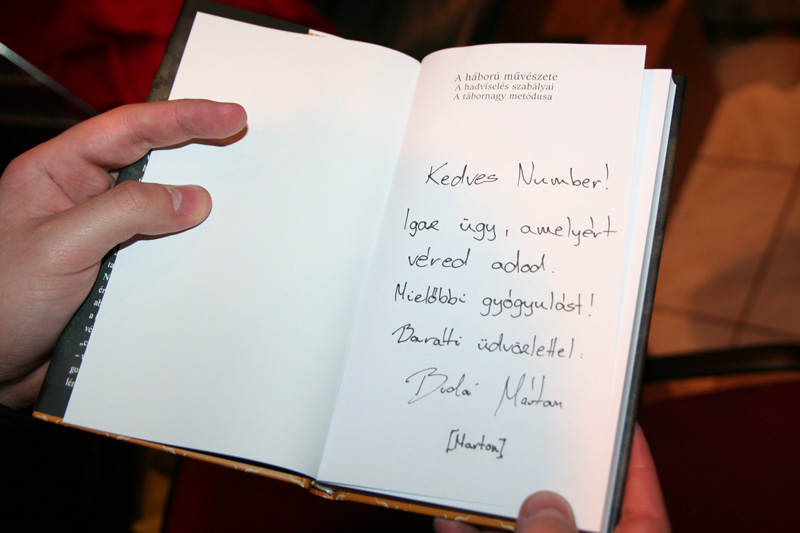 A háború művészete
A hadviselés szabályai
A tábornagy metódusa
Kedves Number!
Igaz ügy, amelyért
véred adod.
Mielőbbi gyógyulást!
Baráti üdvözlettel:
Budai Márton
[Marton]